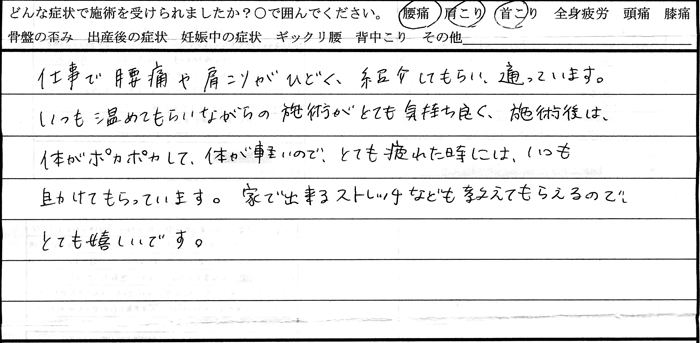 どんな症状で施術を受けられましたか？〇で囲んでください。 腰痛 肩こり 首こり 全身疲労 頭痛 膝痛
骨盤の歪み 出産後の症状 妊娠中の症状 ギックリ腰 背中こり その他
仕事で腰痛や肩こりがひどく、紹介してもらい、通っています。
いつも温めてもらいながらの施術がとても気持ち良く、施術後は、
体がポカポカして、体が軽いので、とても疲れた時には、いつも
助けてもらっています。家で出来るストレッチなども教えてもらえるので、
とても嬉しいです。